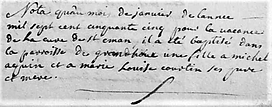 Nota qu'au moi de janvier de lannee
mil sept cent cinquante cinq pour la vacance
de la cure de st eman il a été baptisé dans
la parroisse de une fille a michel
aequin et a marie Louise courtin ses pere
et mere